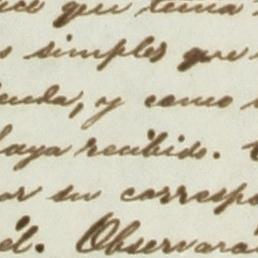 que tema
simples que
enda, y como
haya recibido.
por su correspo
él. Observará